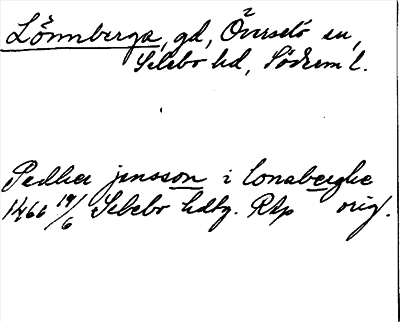 Lönnberga, gd, Överselö sn,
Selebo hd, Söderm l.
Pedher jensson i lonaberghe
1466 19/6 Selebo hdtg. RAp orig.